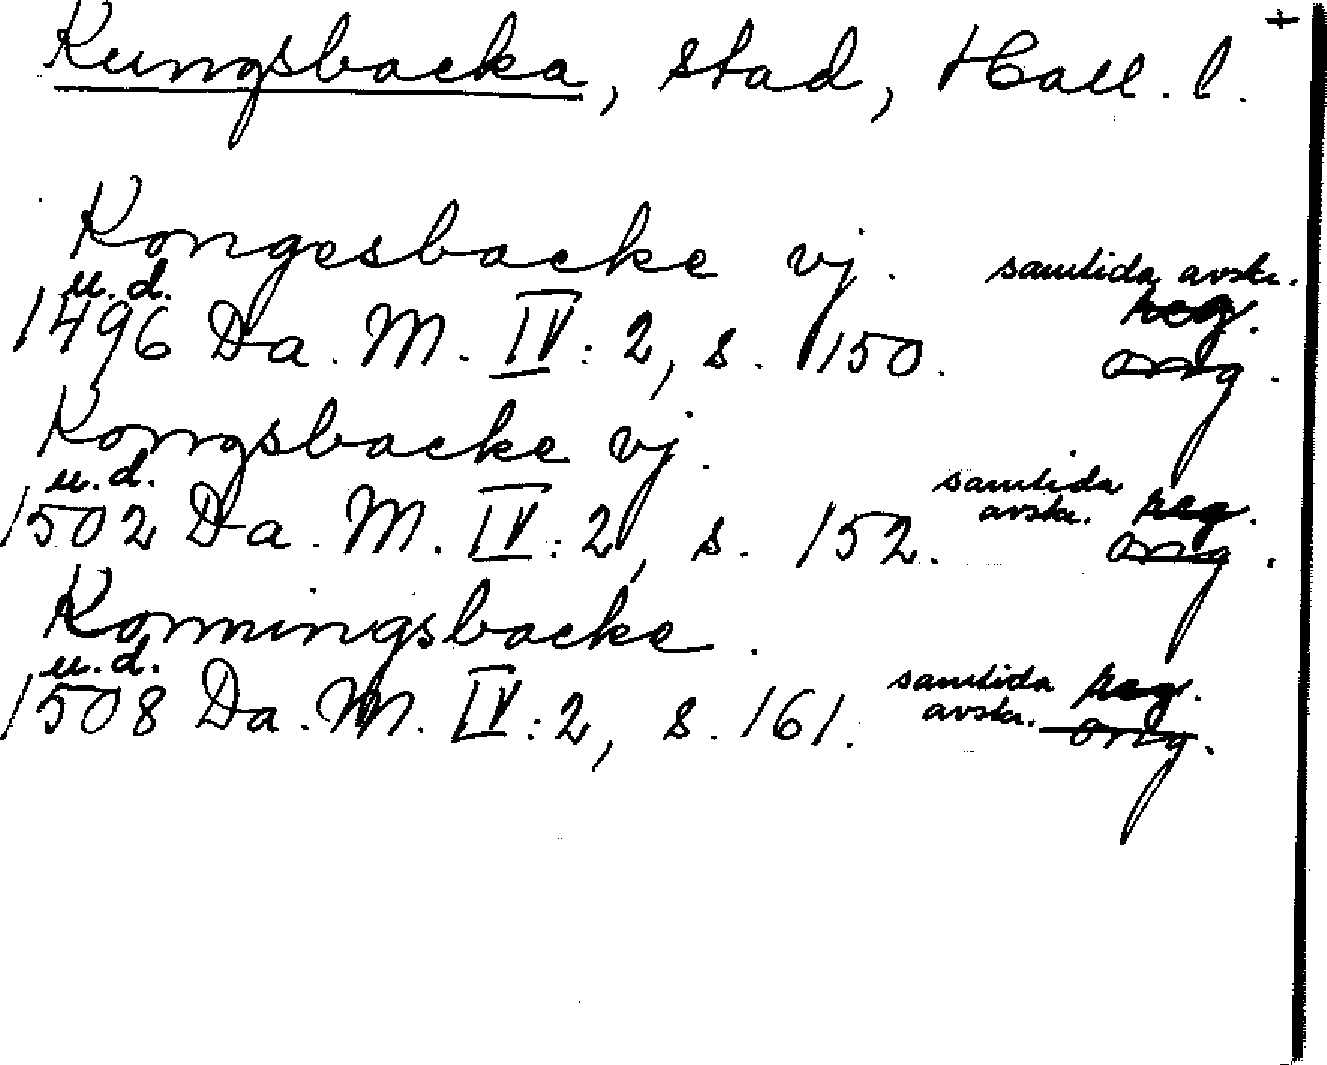 +
Kungsbacka, stad, Hall. l.
Kongesbacke vj. samtida avskr.
u. d. reg.
1496 Da. M. IV: 2, s. 150. orig.
Kongsbacke vj.
u. d. samtida avskr. reg.
1502 Da. M. IV: 2, s. 152. orig.
Konningsbacke.
u. d. samtida avskr. reg.
1508 Da. M. IV: 2, s. 161. orig.